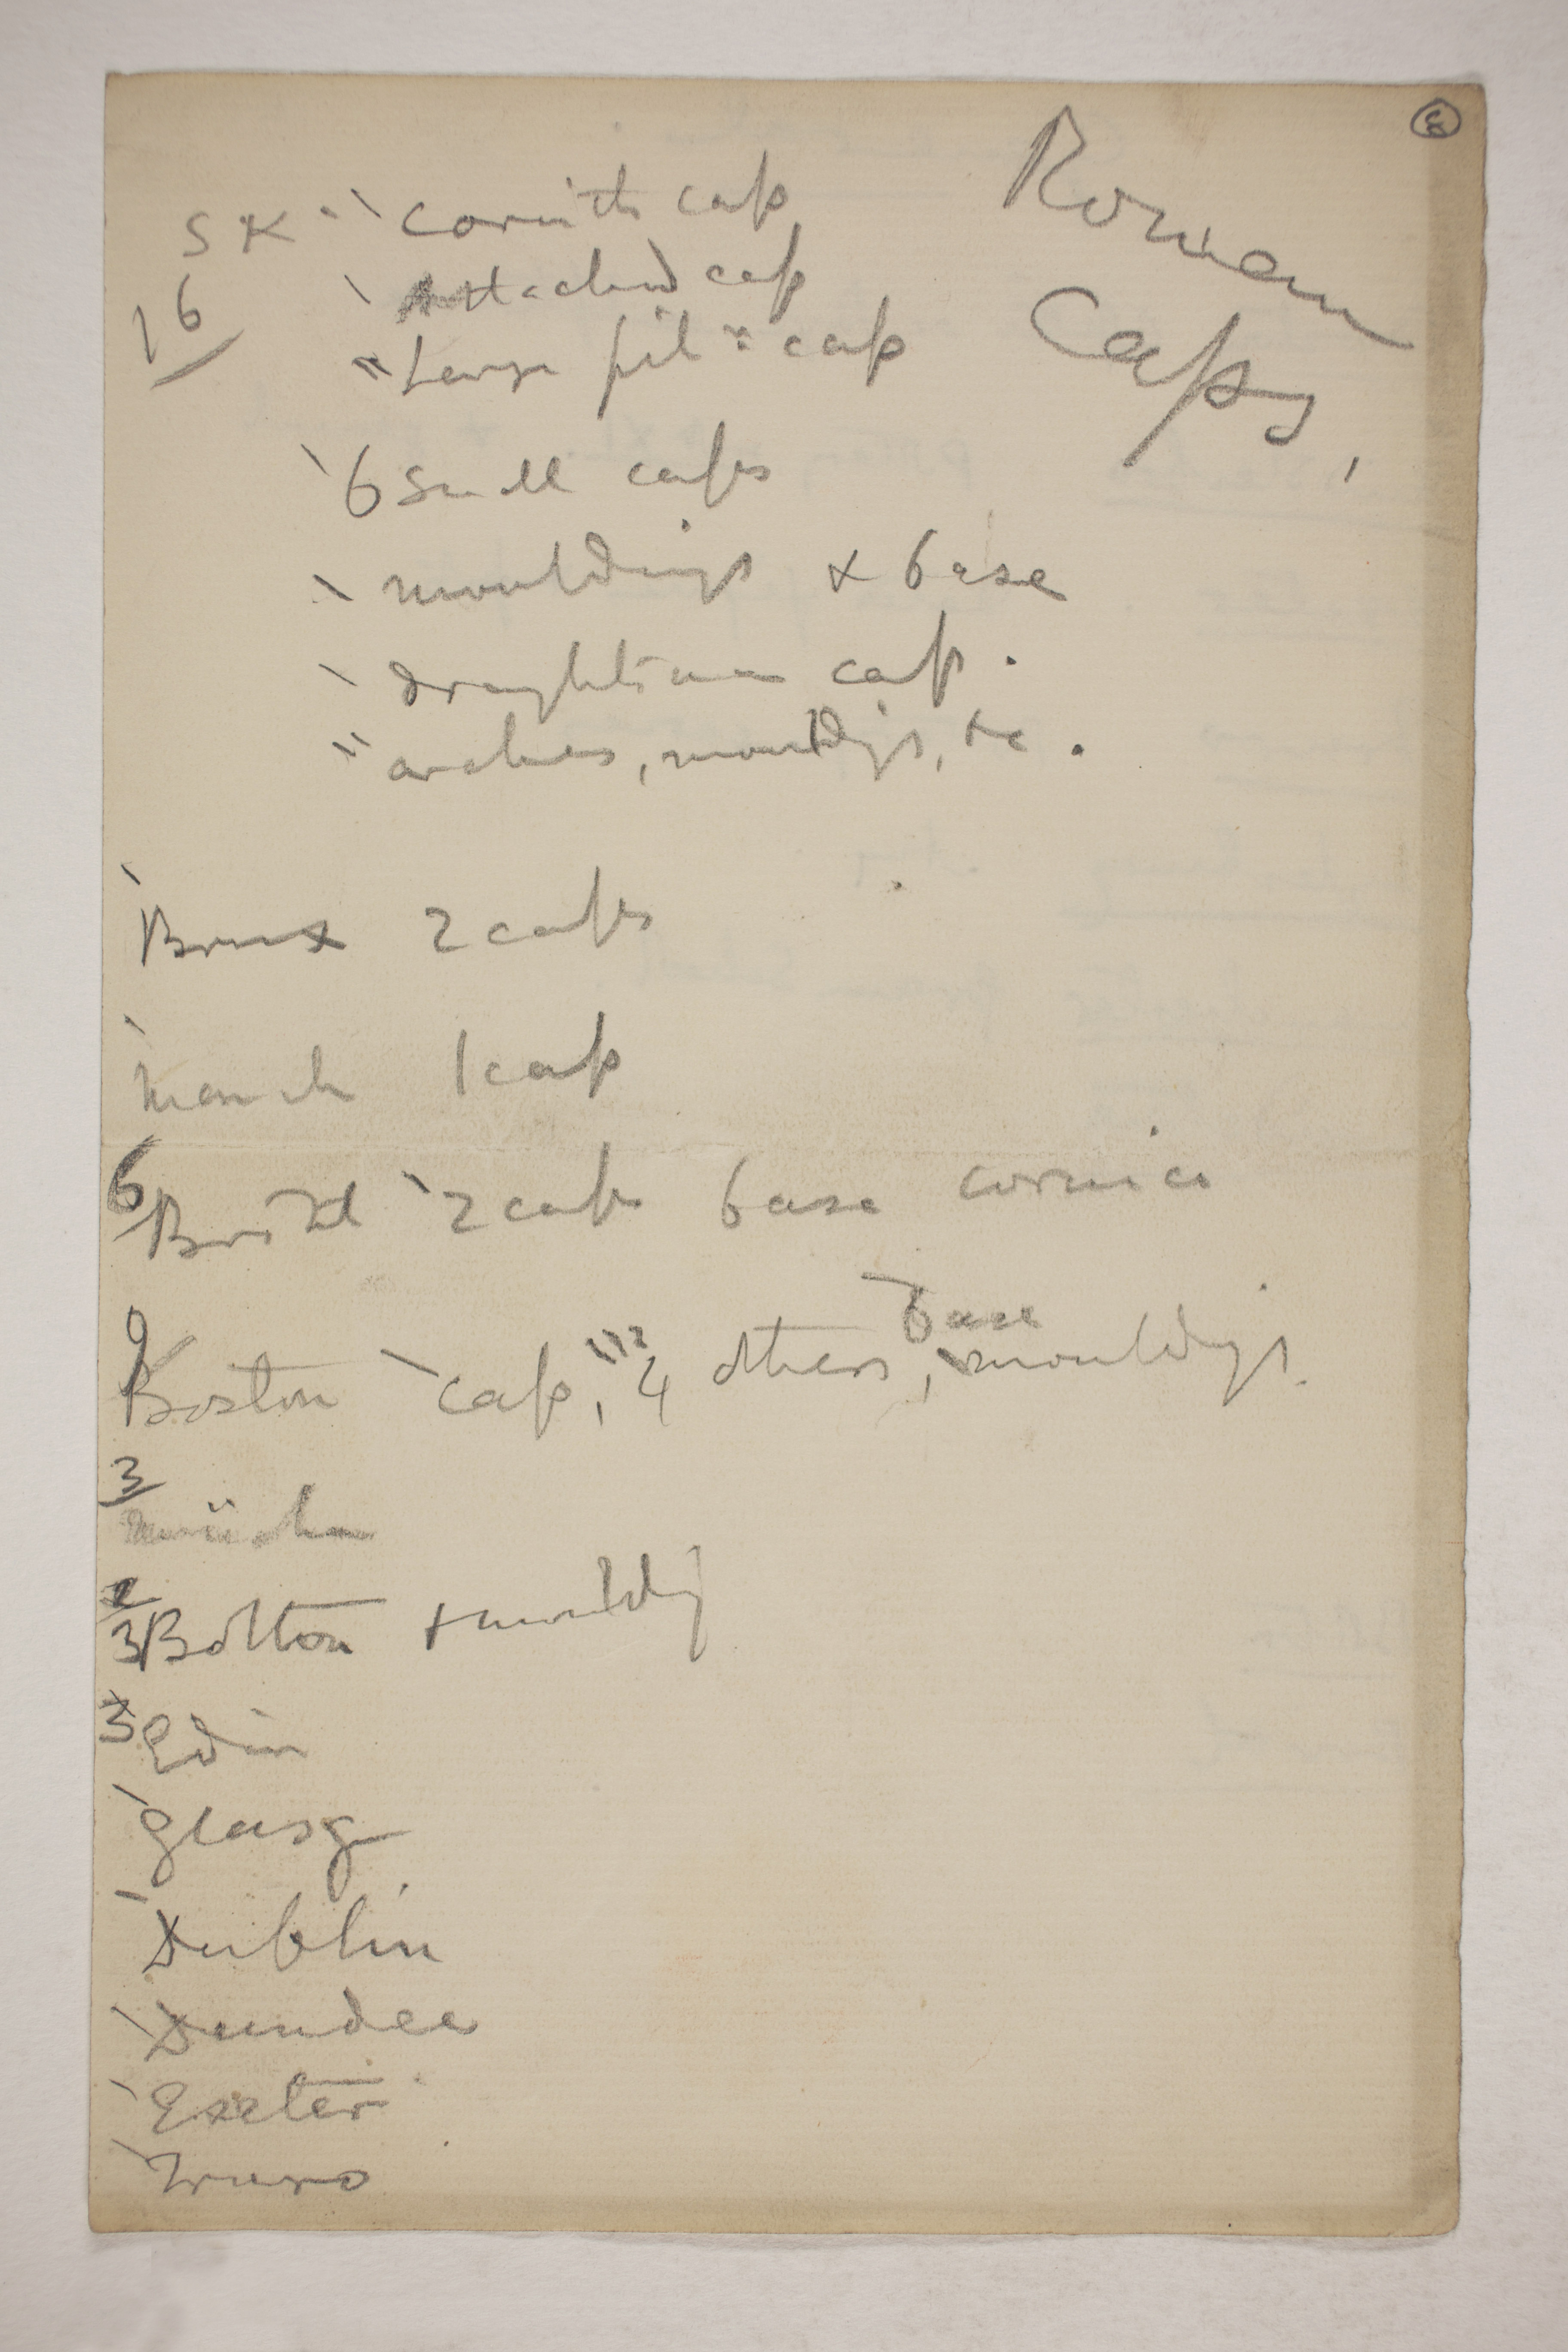 Roman
Caps,
SK Corinth cap
16 Attached cap
Large pil r cap
6 small caps
mouldings & base
draughtsman cap.
arches, mouldgs, &c.
Brux 2 caps
Manch 1 cap
6 Bristl 2 caps base cornice
base
9 Boston cap, 4 others, mouldgs.
3
München
3 Bolton + mouldg
3 Edin
Glasg
Dublin
Dundee
Exeter
Truro